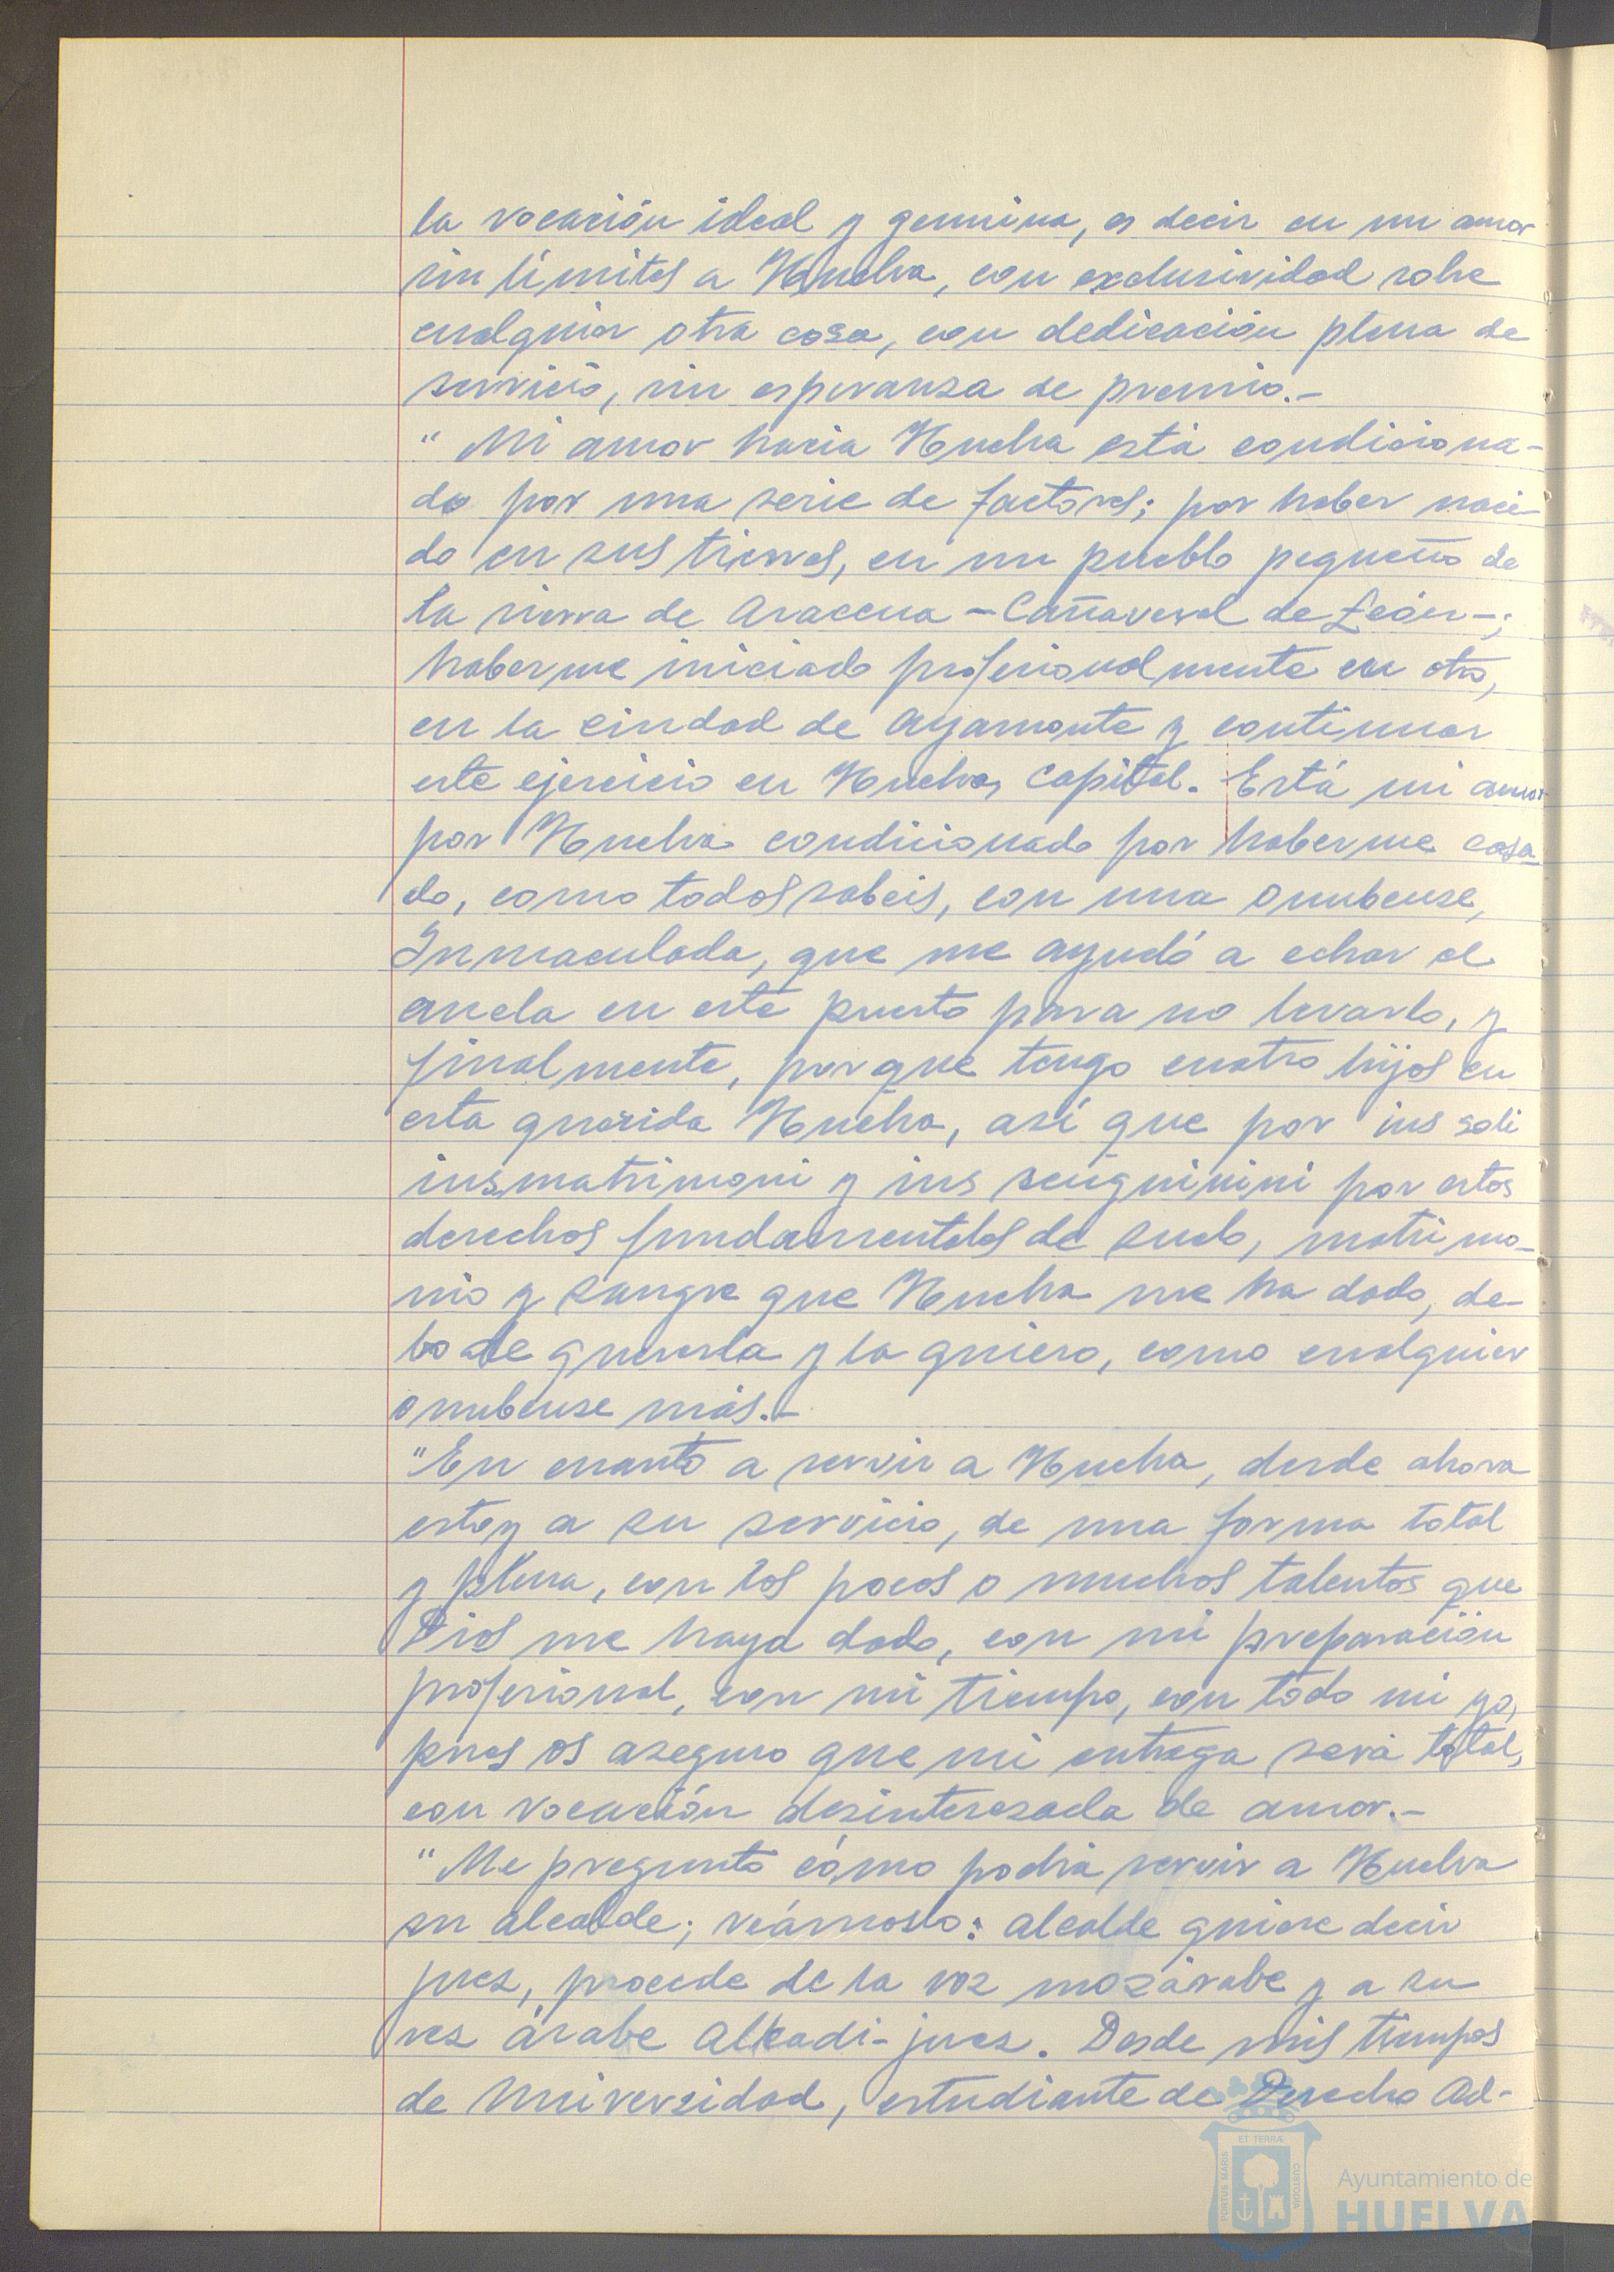 la vocación ideal y genuina, es decir en un amor
sin límites a Huelva, con exclusividad sobre
cualquier otra cosa, con dedicación plena de
servicio, sin esperanza de premio.-
" Mi amor hacia Huelva está condiciona-
do por una serie de factores; por haber naci-
do en sus tierras, en un pueblo pequeño de
la sierra de Aracena -Cañaveral de León-;
haberme iniciado profesionalmente en otro,
en la ciudad de Ayamonte y continuar
este ejercicio en Huelva, Capital. Está mi amor
por Huelva condicionado por haberme casa-
do, como todos sabeis, con una onubense,
Inmaculada, que me ayudó a echar el
ancla en este puerto para no levarlo, y
finalmente, porque tengo cuatro hijos en
esta querida Huelva, así que por ius soli
ius matrimoni y ius senguinini por estos
derechos fundamentales de suelo, matrimo-
nio y sangre que Huelva me ha dado, de-
bo de quererla y la quiero, como cualquier
onubense más.-
"En cuanto a servir a Huelva, desde ahora
estoy a su servicio, de una forma total
y plena, con los pocos o muchos talentos que
Dios me haya dado, con mi preparación
profesional, con mi tiempo, con todo mi yo,
pues os aseguro que mi entrega será total,
con vocación desinteresada de amor.-
"Me pregunto cómo podría servir a Huelva
su alcalde; veámoslo: alcalde quiere decir
juez, procede de la voz mozárabe y a su
vez árabe Alkadi-juez. Desde mis tiempos
de Universidad, estudiante de Derecho Ad-
PORTUS MARIS ET TERRÆ CUSTODIA
Ayuntamiento de
HUELVA